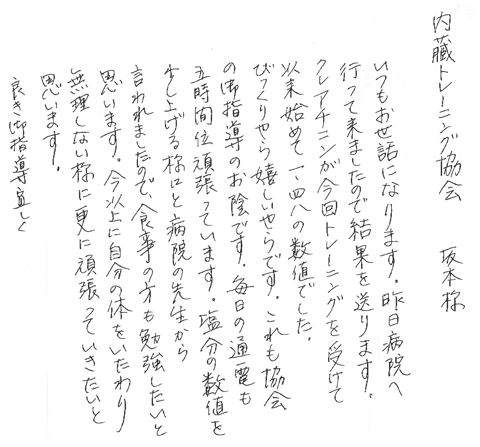 内臓トレーニング協会　坂本様
いつもお世話になります。昨日病院へ
行って来ましたので結果を送ります。
クレアチニンが今回トレーニングを受けて
以来始めて一、四八の数値でした。
びっくりやら嬉しいやらです。これも協会
の御指導のお陰です。毎日の通電も
五時間位頑張っています。塩分の数値を
少し上げる様にと病院の先生から
言われましたので、食事の方も勉強したいと
思います。今以上に自分の体をいたわり
無理しない様に更に頑張っていきたいと
思います。
良き御指導宜しく